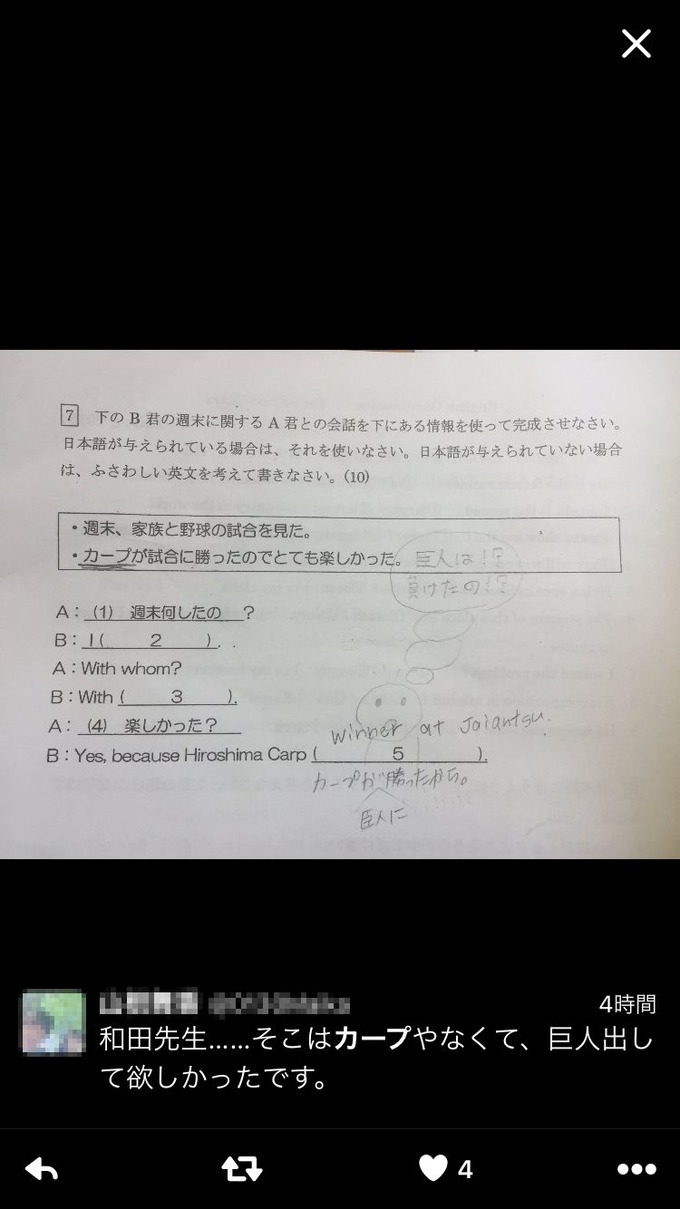 7 下の B 君の週末に関する A 君との会話を下にある情報を使って完成させなさい。
日本語が与えられている場合は、それを使いなさい。日本語が与えられていない場合
は、ふさわしい英文を考えて書きなさい。(10)
・週末、家族と野球の試合を見た。
・カープが試合に勝ったのでとても楽しかった。
巨人は!?
負けたの!?
A : (1) 週末何したの ?
B : I ( 2 ).
A : With whom?
B : With ( 3 ).
A : (4) 楽しかった?
winner at Jaiantsu.
B : Yes, because Hiroshima Carp ( 5 ).
カープが勝ったから。
巨人に
4時間
和田先生......そこはカープやなくて、巨人出し
て欲しかったです。
4